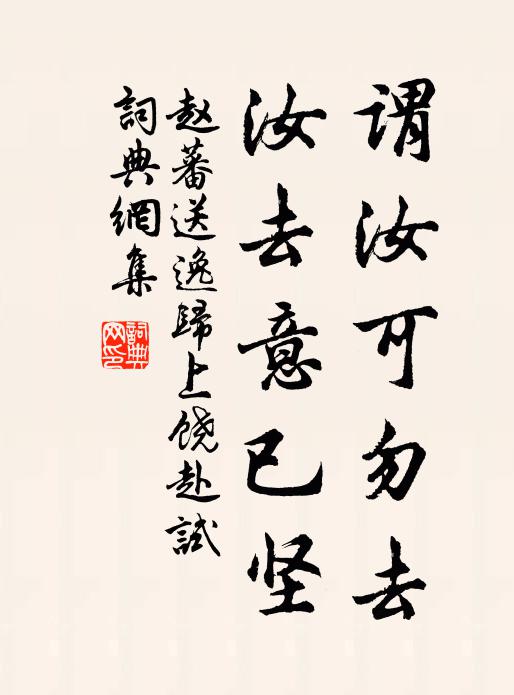 谓汝可勿去
汝去意已坚
赵蕃送逸歸上饶赴試
詞典網集
詞典
网印